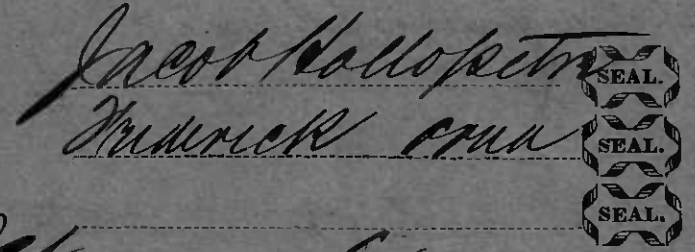 Jacob Hollopeter SEAL.
Frederick SEAL.
SEAL.